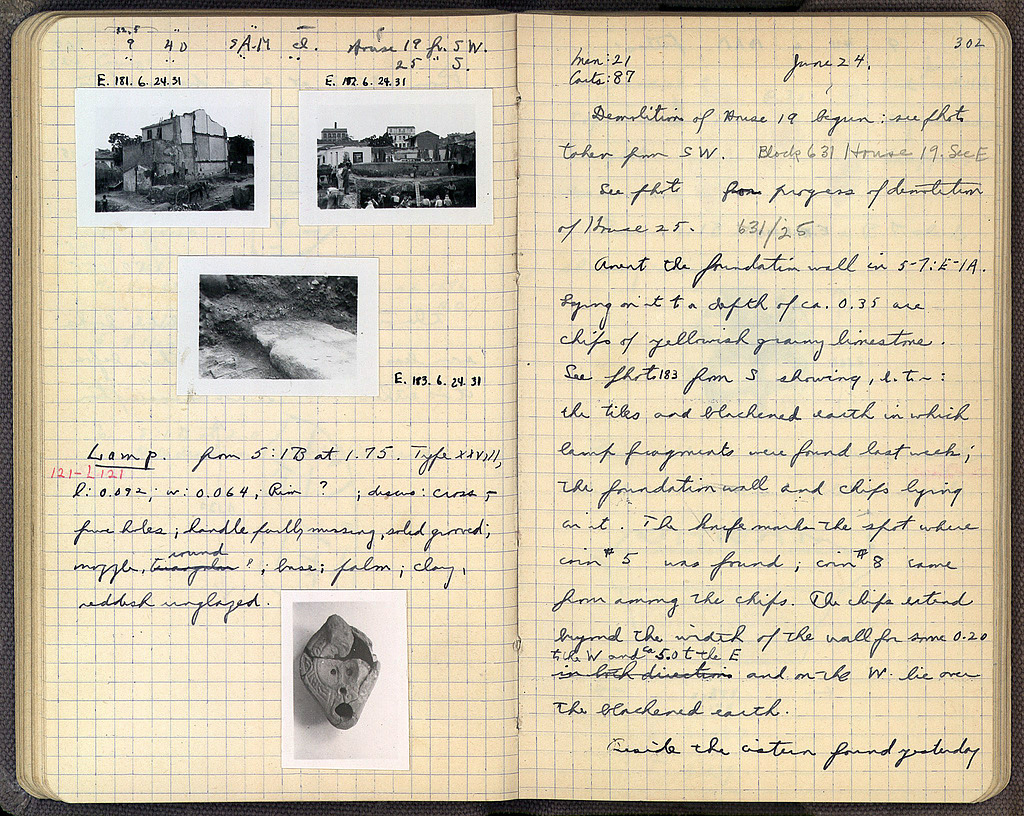 9 4D 9 A.M cl. House 19 fr. S W.
25 S.
E. 181. 6. 24. 31
E. 182. 6. 24. 31
E. 183. 6. 24. 31
Lamp. from 5:1B at 1.75. Type XXVIII,
121-L121
l: 0.092; w: 0.064; Rim ? ; discus: cross,
five holes; handle partly missing, solid grooved;
round
nozzle, triangular ?; base; palm; clay,
reddish unglazed.
302
Men: 21
Carts: 87
June 24.
Demolition of House 19 begun: see photo
taken from SW. Block 631 / House 19. See E
See phot from progress of demolition
of House 25. 631/25
Anent the foundation wall in 5-7: E-1A.
Lying on it to a depth of ca. 0.35 are
chips of yellowish grainy limestone.
See photo 183 from S showing, b. t. :
the tiles and blackened earth in which
lamp fragments were found last week;
the foundation wall and chips lying
on it. The knife marks the spot where
coin #5 was found; coin #8 came
from among the chips. The chips extend
beyond the width of the wall for some 0.20
to the W and ca 5.0 to the E
in both directions and on the W. lie over
the blackened earth.
Inside the cistern found yesterday